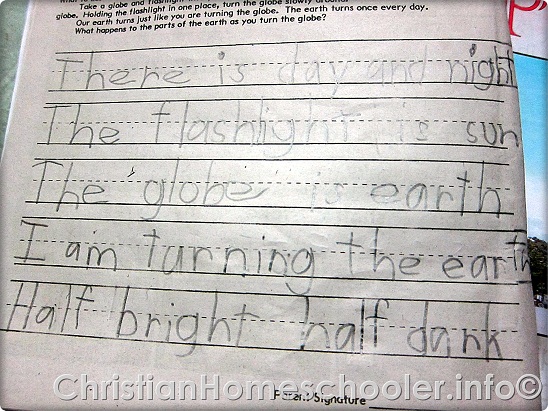 Take a globe and flashlight turn the globe slowly around
globe. Holding the flashlight in one place, turn the globe slowly
Our earth turns just like you are turning the globe. The earth turns once every day.
What happens to the parts of the earth as you turn the globe?
There is day and night
The flashlight is sun
The globe is earth
I am turning the earth
Half bright half dark
Parent Signature
ChristianHomeschooler.info©